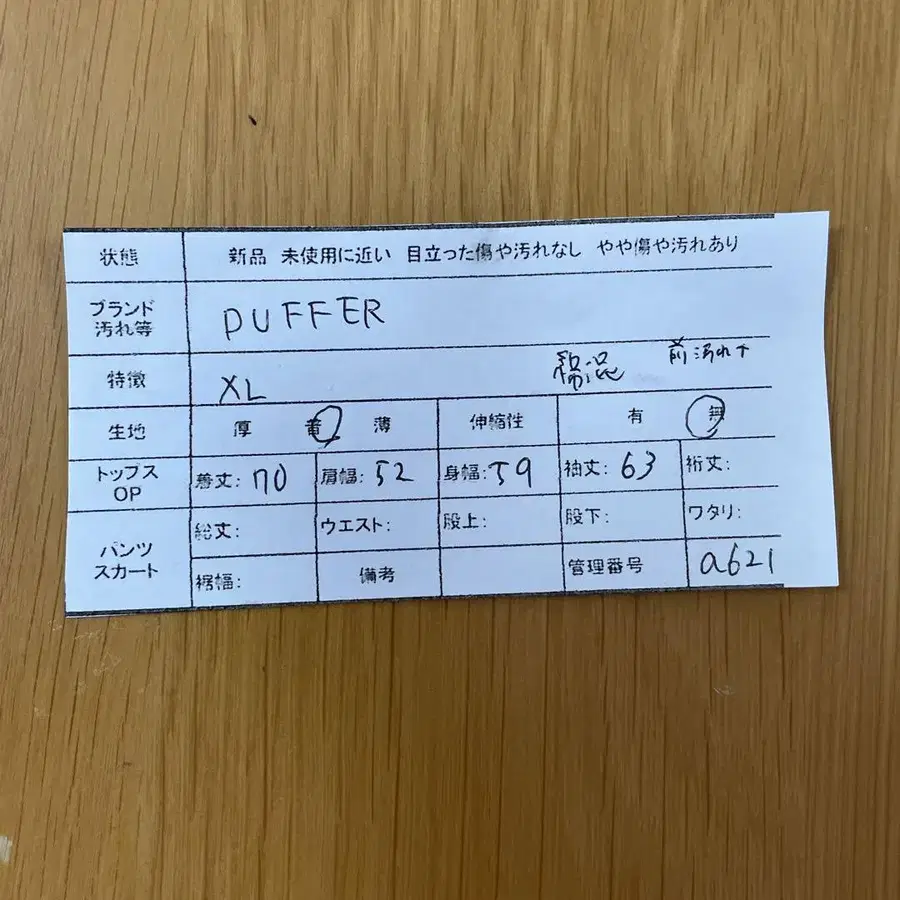 状態 新品 未使用に近い 目立った傷や汚れなし やや傷や汚れあり
ブランド 汚れ等 PUFFER
特徴 XL 綿混 前汚れ
生地 厚 普 薄 伸縮性 有 無
トップス OP 着丈: 70 肩幅: 52 身幅: 59 袖丈: 63 裄丈:
パンツ スカート 総丈: ウエスト: 股上: 股下: ワタリ:
裾幅: 備考 管理番号 a621